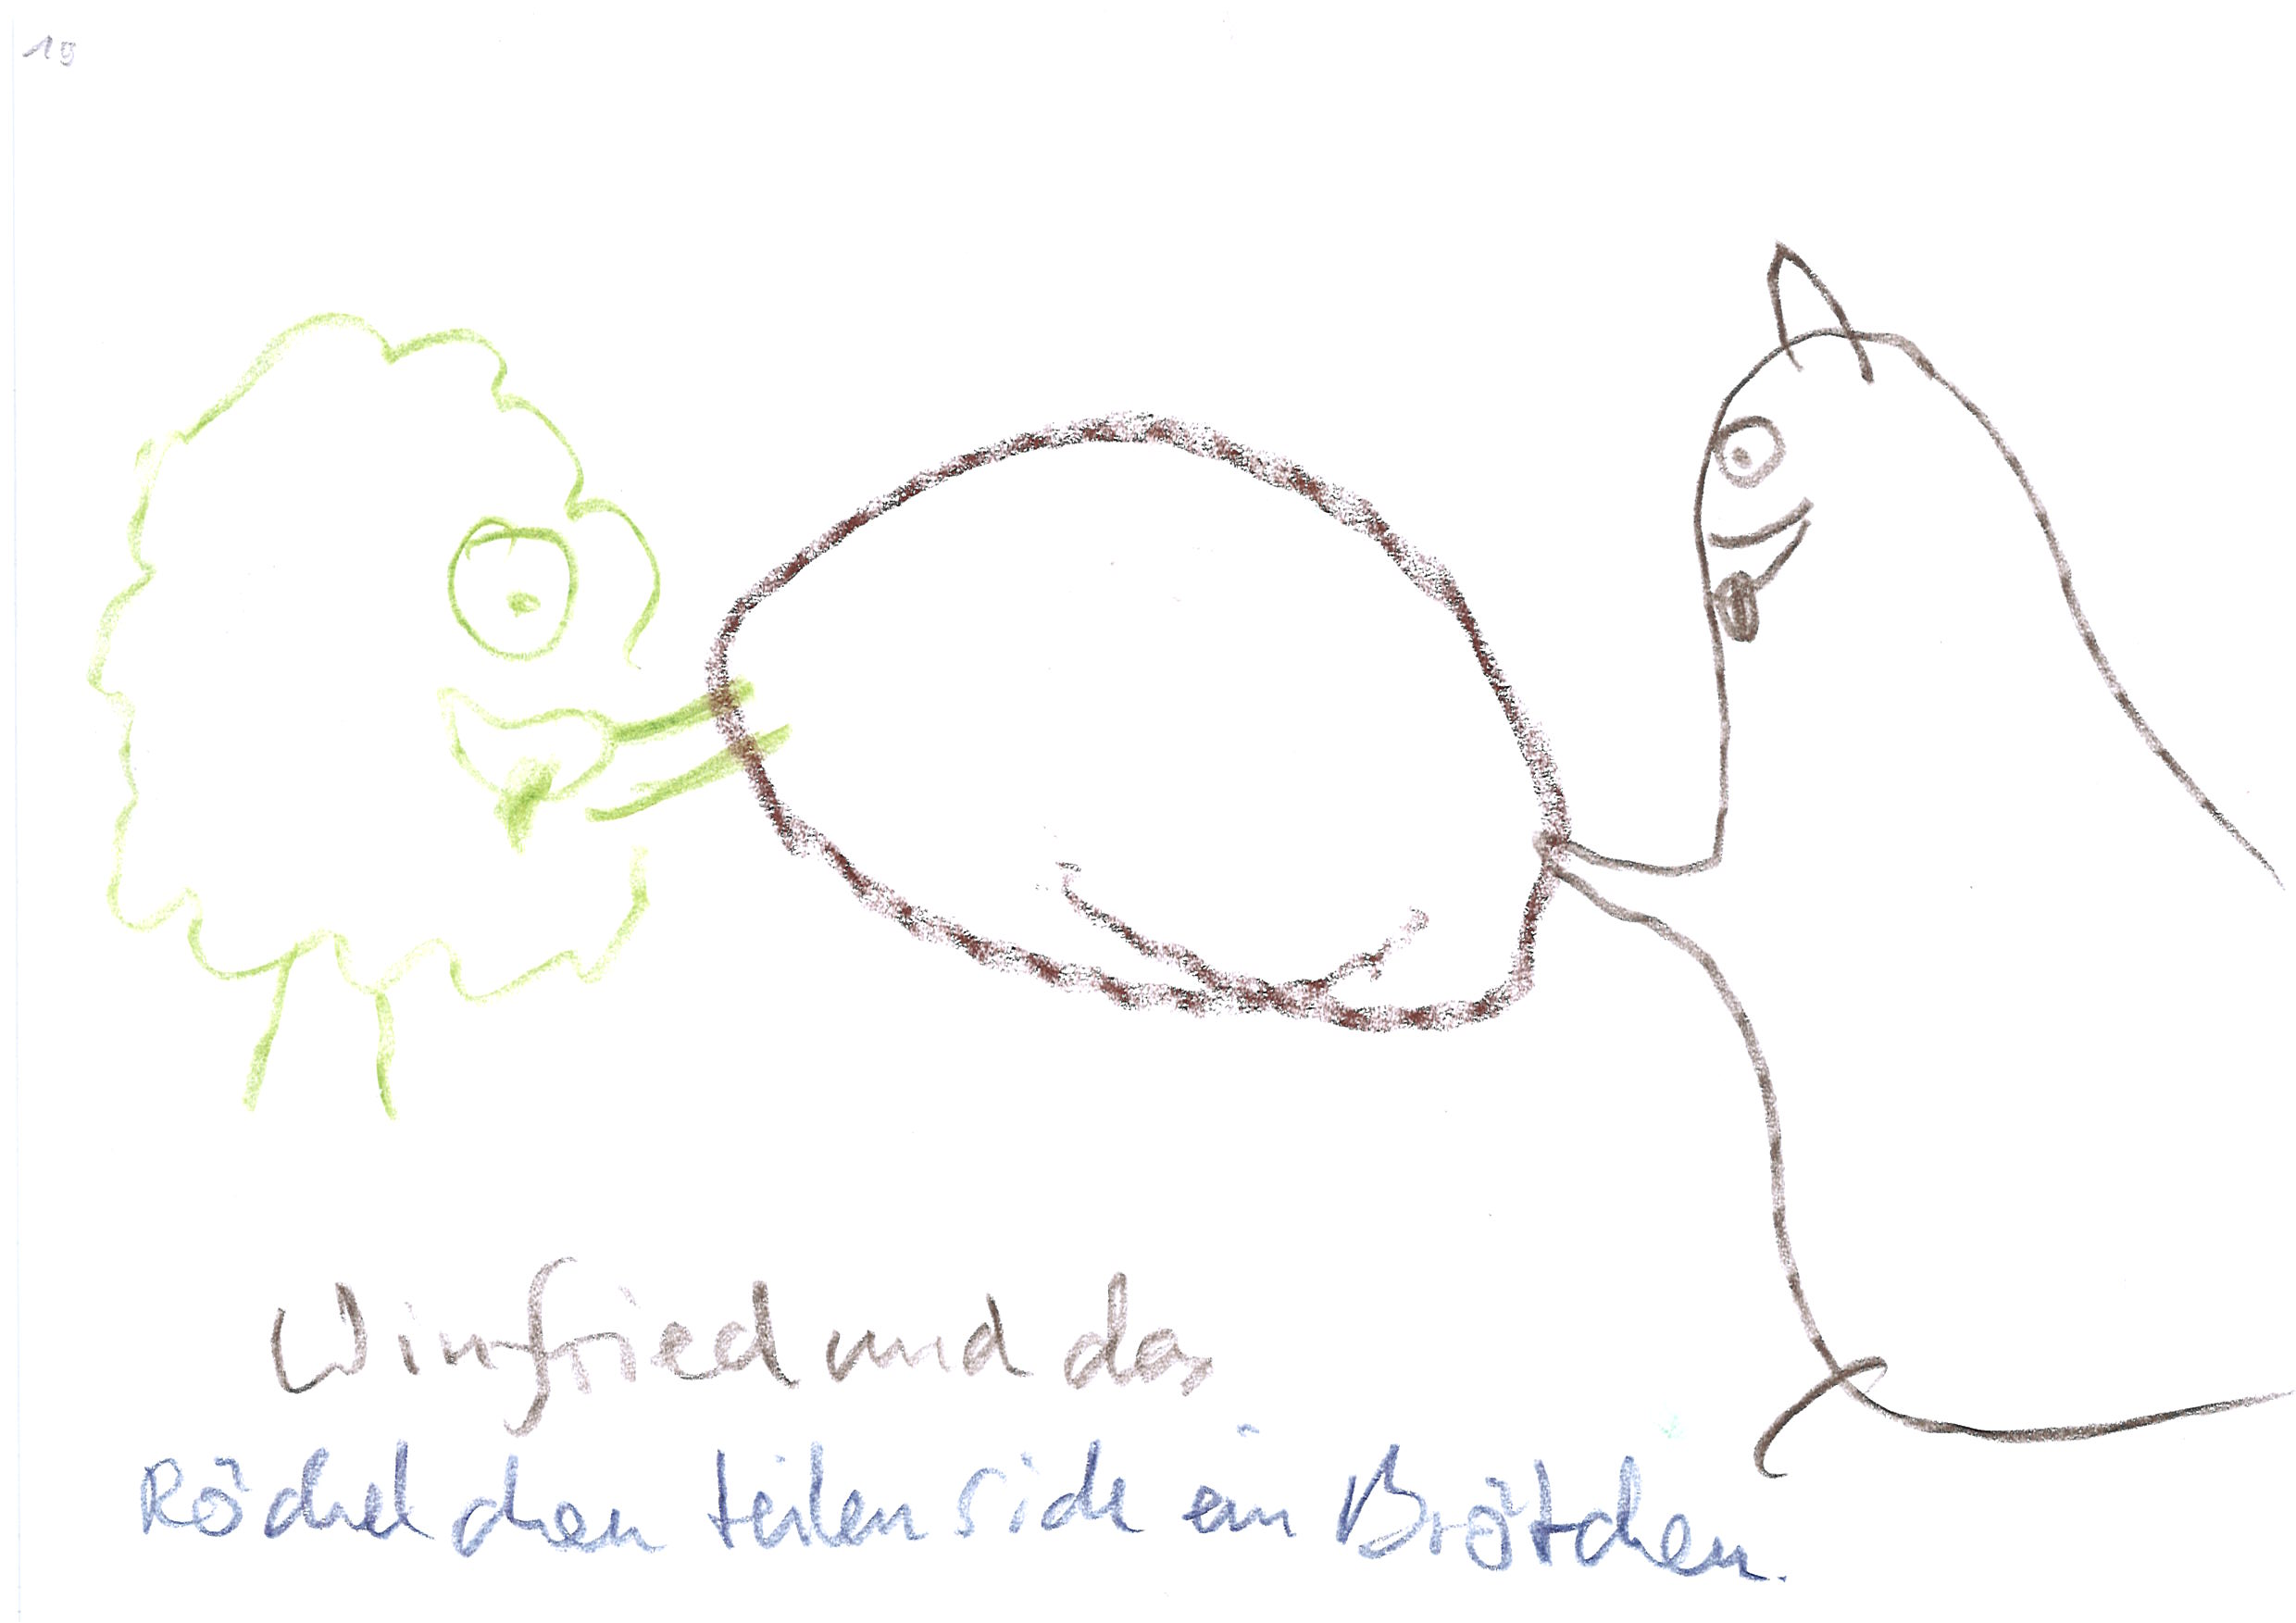 19
Winfried und das
Röchelchen teilen sich ein Brötchen.